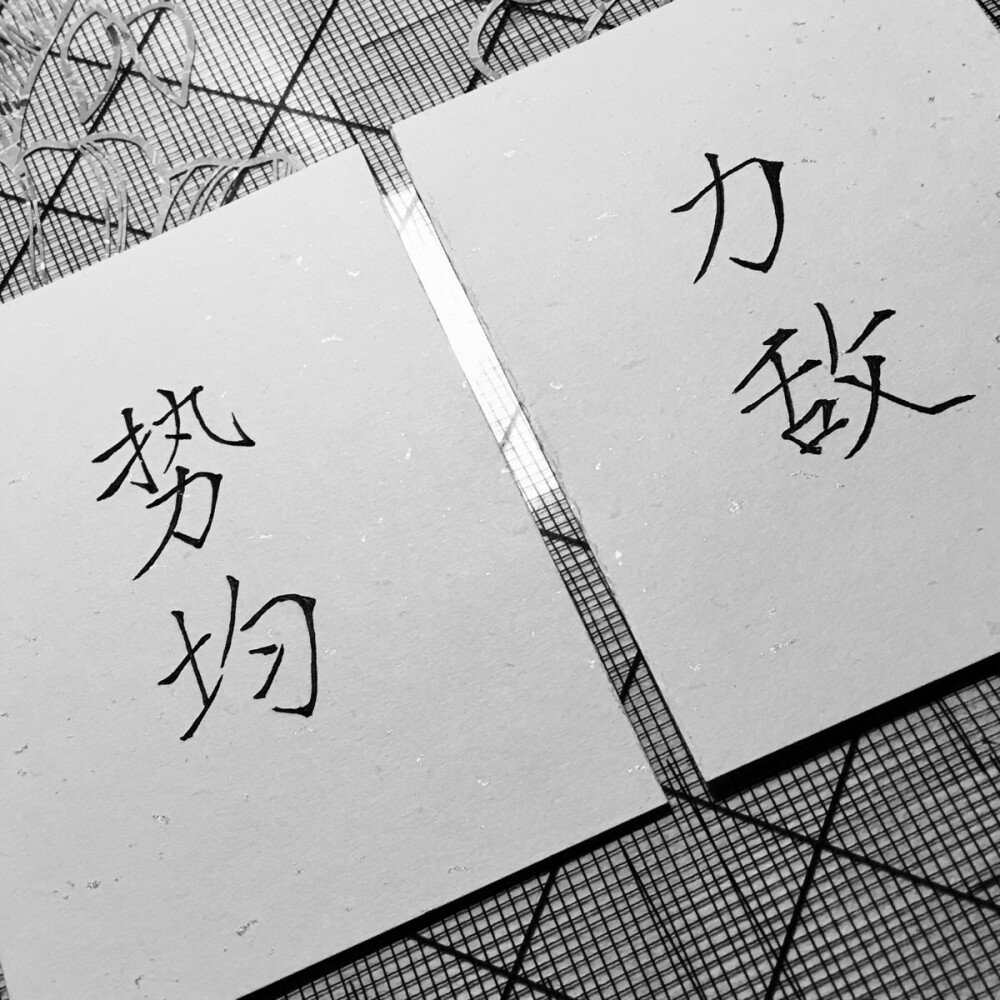 势均
力敌